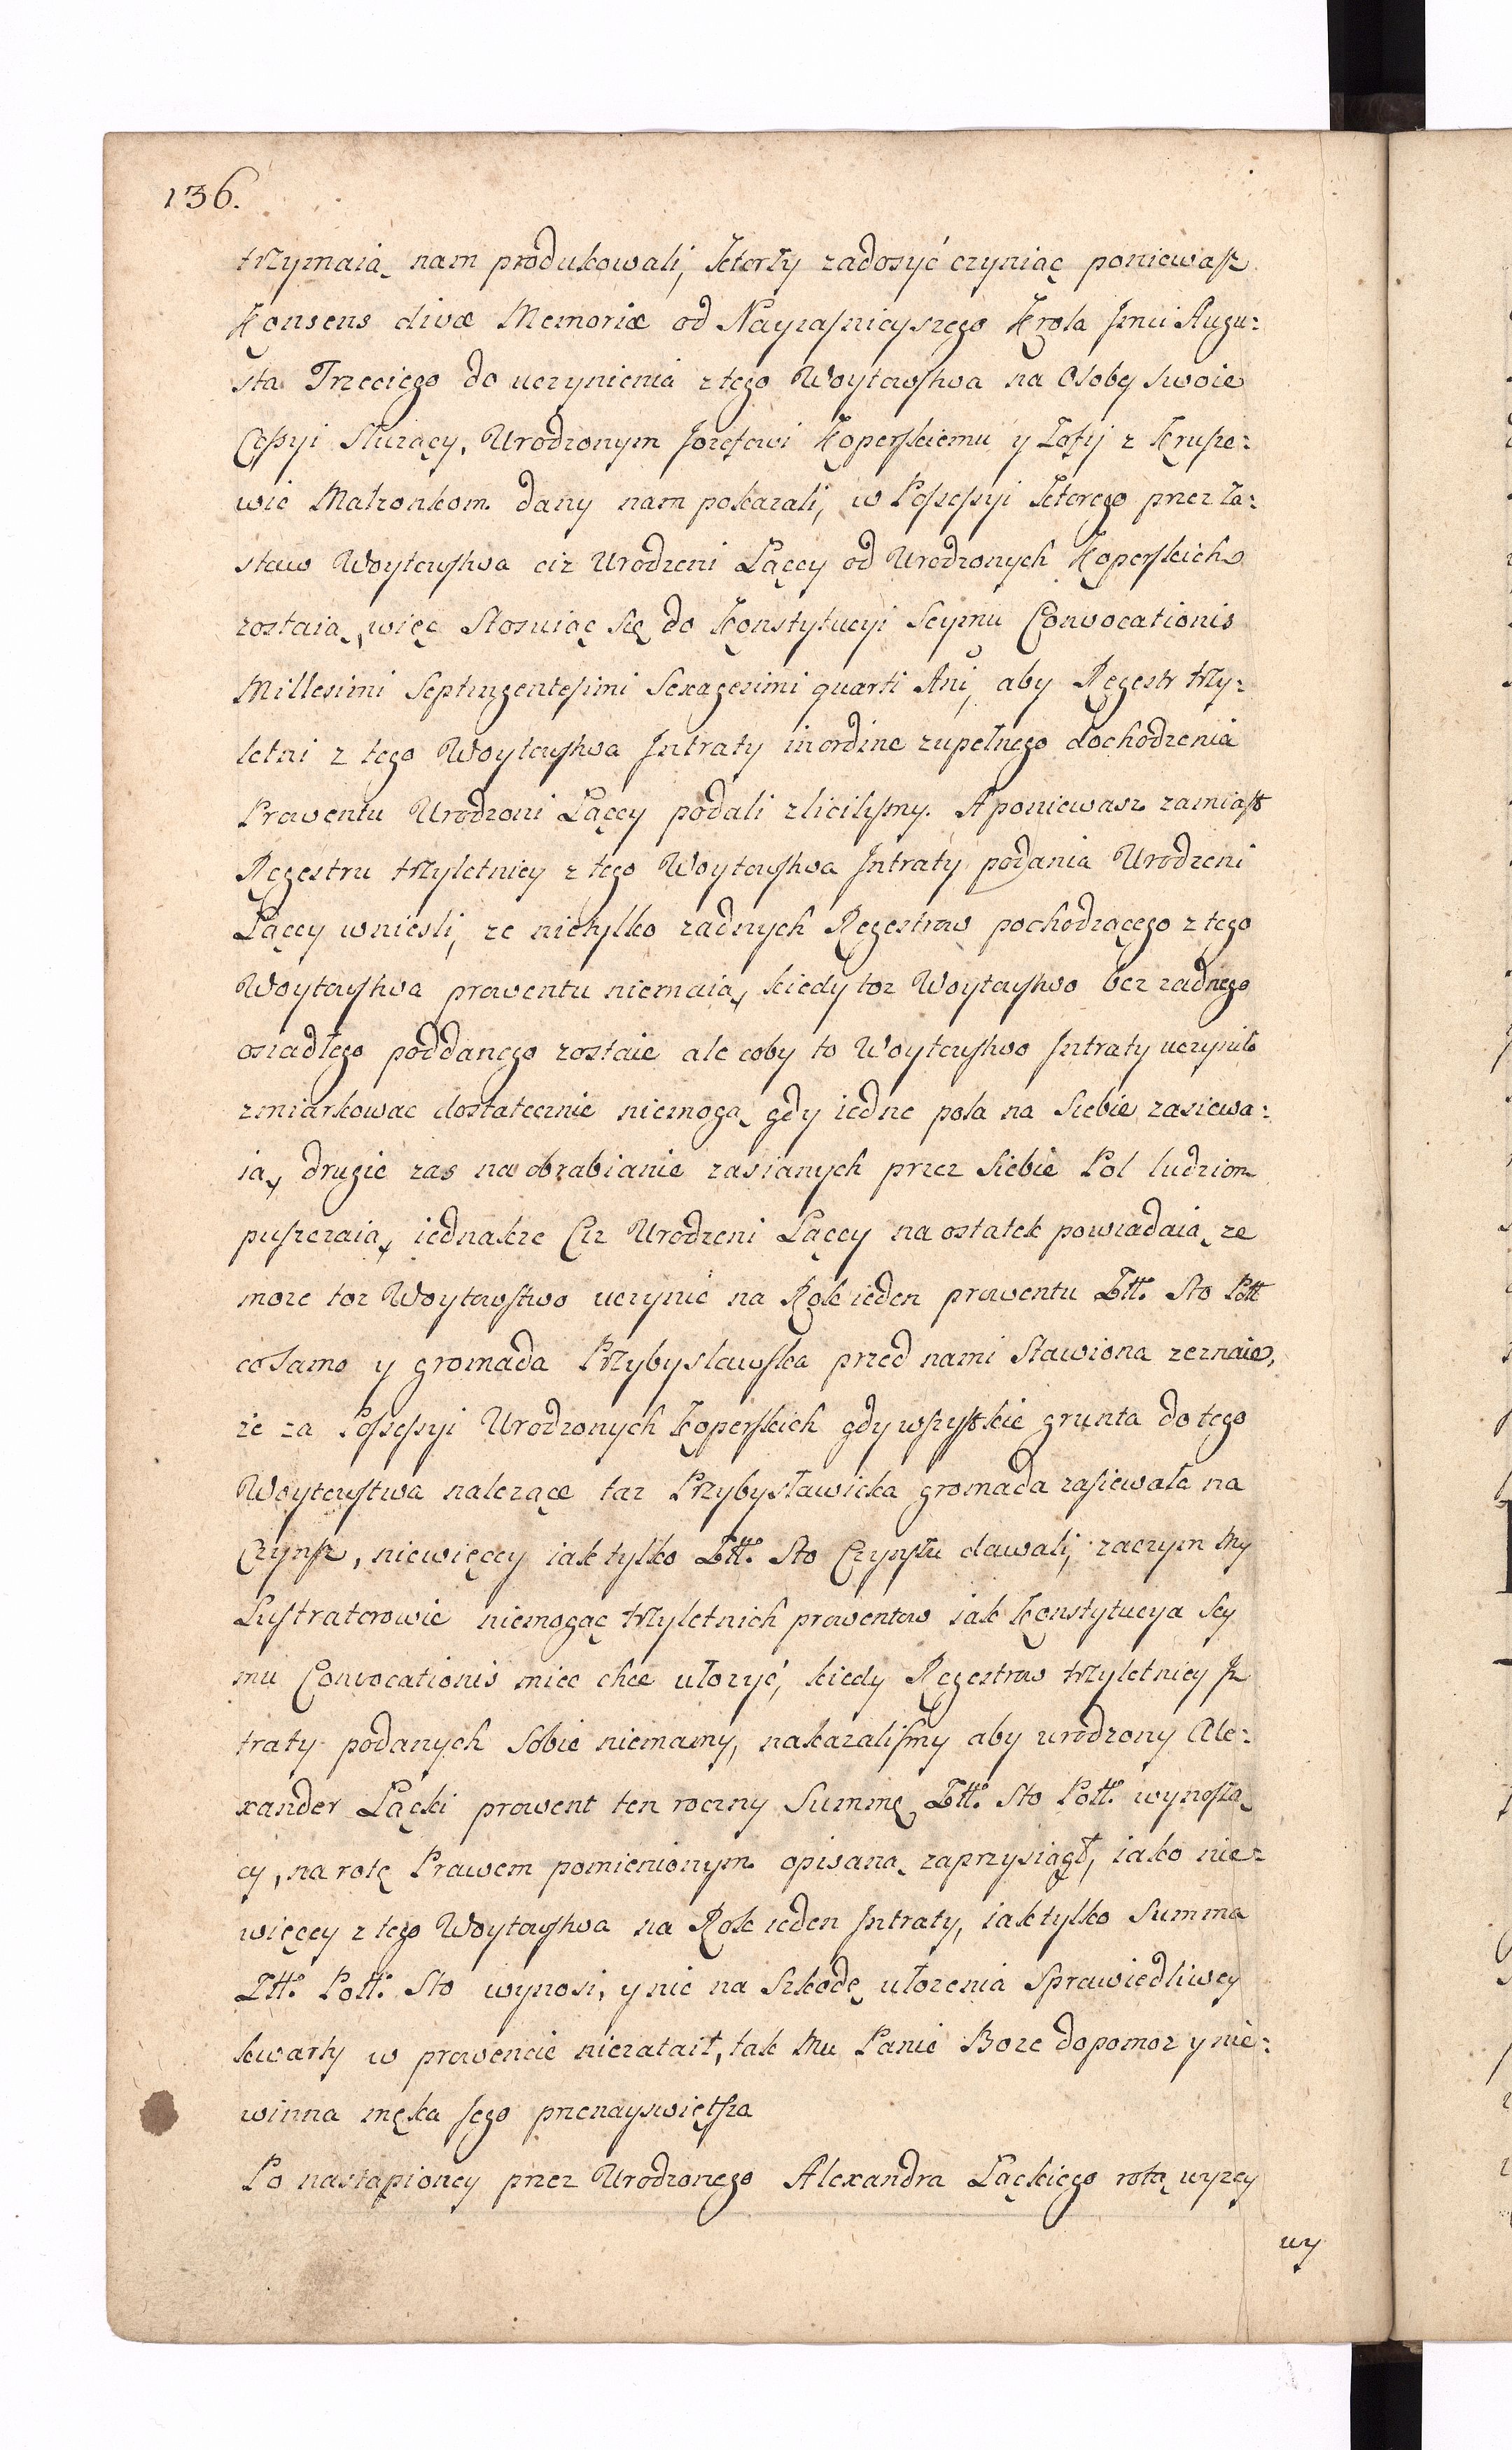 136.
trzymaią nam produkowali, ktorzy zadosyć czyniąc poniewasz
Konsens divæ Memoriæ od Nayiasnieyszego Krola Jmci Augu:
sta Trzeciego do uczynienia z tego Woytowstwa na Osoby swoie
Cessyi słuzący, Urodzonym Jozefowi Koperskiemu y Zofij z Krusze:
wic Małzonkom dany nam pokazali, w Possessyi ktorego przez Za:
staw Woytowstwa ciz Urodzeni Łąccy od Urodzonych Koperskich
zostaią, więc stosuiąc się do Konstytucyi Seymu Convocationis
Millesimi Septingentesimi Sexagesimi quarti Ani, aby Regestr trzy:
letni z tego Woytowstwa Intraty in ordine zupełnego dochodzenia
Prowentu Urodzeni Łąccy podali zlicilismy. A poniewasz zamiast
Regestru trzyletniey z tego Woytowstwa Intraty podania Urodzeni
Łąccy wniesli, ze nietylko zadnych Regestrow pochodzącego z tego
Woytowstwa prowentu niemaią, kiedy toz Woytowstwo bez zadnego
osiadłego poddanego zostaie ale coby to Woytowstwo Intraty uczyniło
zmiarkowac dostatecznie niemogą gdy iedne pola na siebie zasiewa:
ią, drugie zas na obrabianie zasianych przez siebie Pol ludziom
puszczaią, iednakze Ciz Urodzeni Łąccy na ostatek powiadaią, ze
moze toz Woytowstwo uczynić na Rok ieden prowentu Złł. Sto Poll
co samo y gromada Przybysławska przed nami stawiona zeznaie,
że za Possessyi Urodzonych Koperskich gdy wszystkie grunta do tego
Woytowstwa nalezące taz Przybysławicka gromada zasiewała na
Czynsz, niewięcey iak tylko Złł. Sto Czynszu dawali, zaczym My
Lustratorowie niemogąc trzyletnich prowentow iak Konstytucya Sey
mu Convocationis miec chce ułozyć, kiedy Regestrow trzyletniey In
traty podanych sobie niemamy, nakazalismy aby urodzony Ale:
xander Łącki prowent ten roczny Summę Złł. Sto Poll. wynoszą
cy, na rotę Prawem pomienionym opisaną zaprzysiągł, iako nie:
więcey z tego Woytowstwa na Rok ieden Intraty, iak tylko Summa
Złł. Poll. Sto wynosi, y nic na Szkodę ułozenia Sprawiedliwey
kwarty w prowencie niezataił, tak Mu Panie Boze dopomoz y nie:
winna męka Jego przenayswiętsza
Po nastąpioney przez Urodzonego Alexandra Łąckiego rotą wyzey
wy